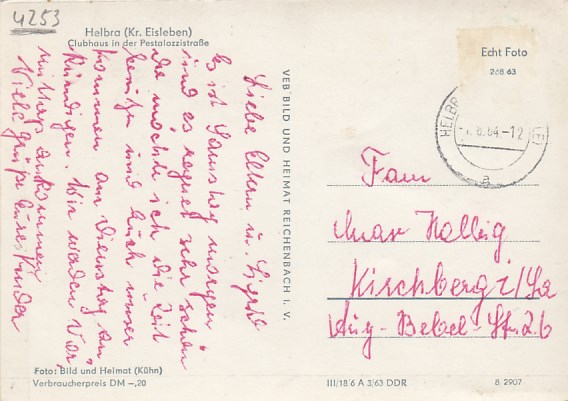 4253
Helbra (Kr. Eisleben)
Clubhaus in der Pestalozzistraße
Liebe Eltern u. Sigrid
Es ist Samstag morgen
und es regnet sehr schön
da möchte ich die Zeit
benützen und Euch unser
kommen am Dienstag an
kündigen. Wir werden Vor
mittags ankommen
Viele Grüße Eure Kinder
Foto: Bild und Heimat (Kühn)
Verbraucherpreis DM -,20
VEB BILD UND HEIMAT REICHENBACH I. V.
Echt Foto
268 63
HELBR
.64.-12
a
Fam
Max Hollig
Kirchberg i/Sa
Aug-Bebel-Str. 26
III/18/6 A 3/63 DDR
8 2907